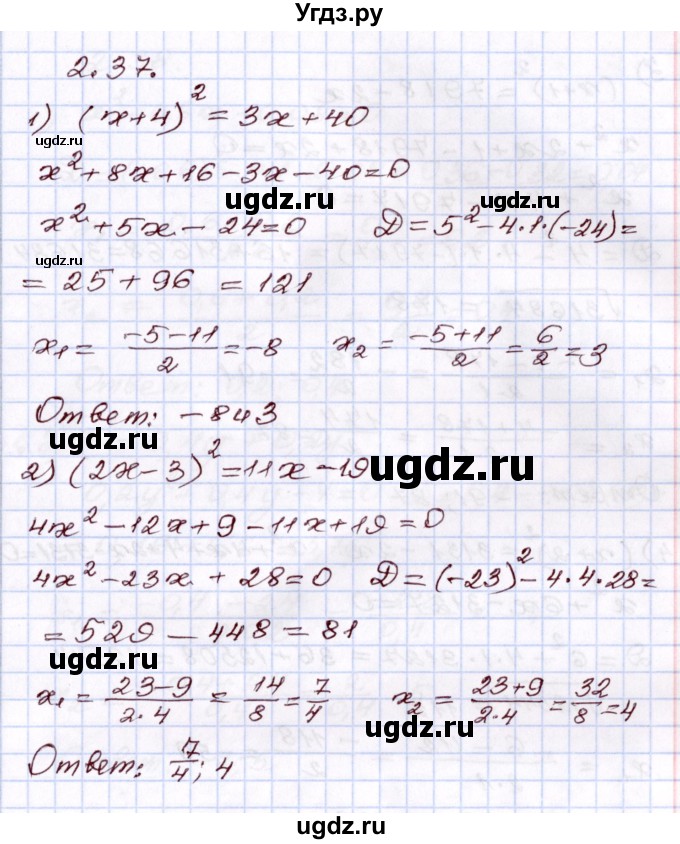 Угдз.ру
2.37.
1) (x+4)² = 3x+40
ugdz.ru
x²+8x+16-3x-40=0
ugdz.ru
ugdz.ru
x²+5x-24=0 D=5²-4·1·(-24)=
ugdz.ru
= 25+96 = 121
x₁ = (-5-11)/2 = -8 x₂ = (-5+11)/2 = 6/2 = 3
ugdz.ru
ugdz.ru
Ответ: -8и3
ugdz.ru
2) (2x-3)² = 11x-19
ugdz.ru
4x²-12x+9-11x+19=0
ugdz.ru
4x²-23x+28=0 D=(-23)²-4·4·28=
ugdz.ru
= 529-448=81
ugdz.ru
x₁ = (23-9)/(2·4) = 14/8 = 7/4 x₂ = (23+9)/(2·4) = 32/8 = 4
ugdz.ru
ugdz.ru
Ответ: 7/4; 4
ugdz.ru
ugdz.ru